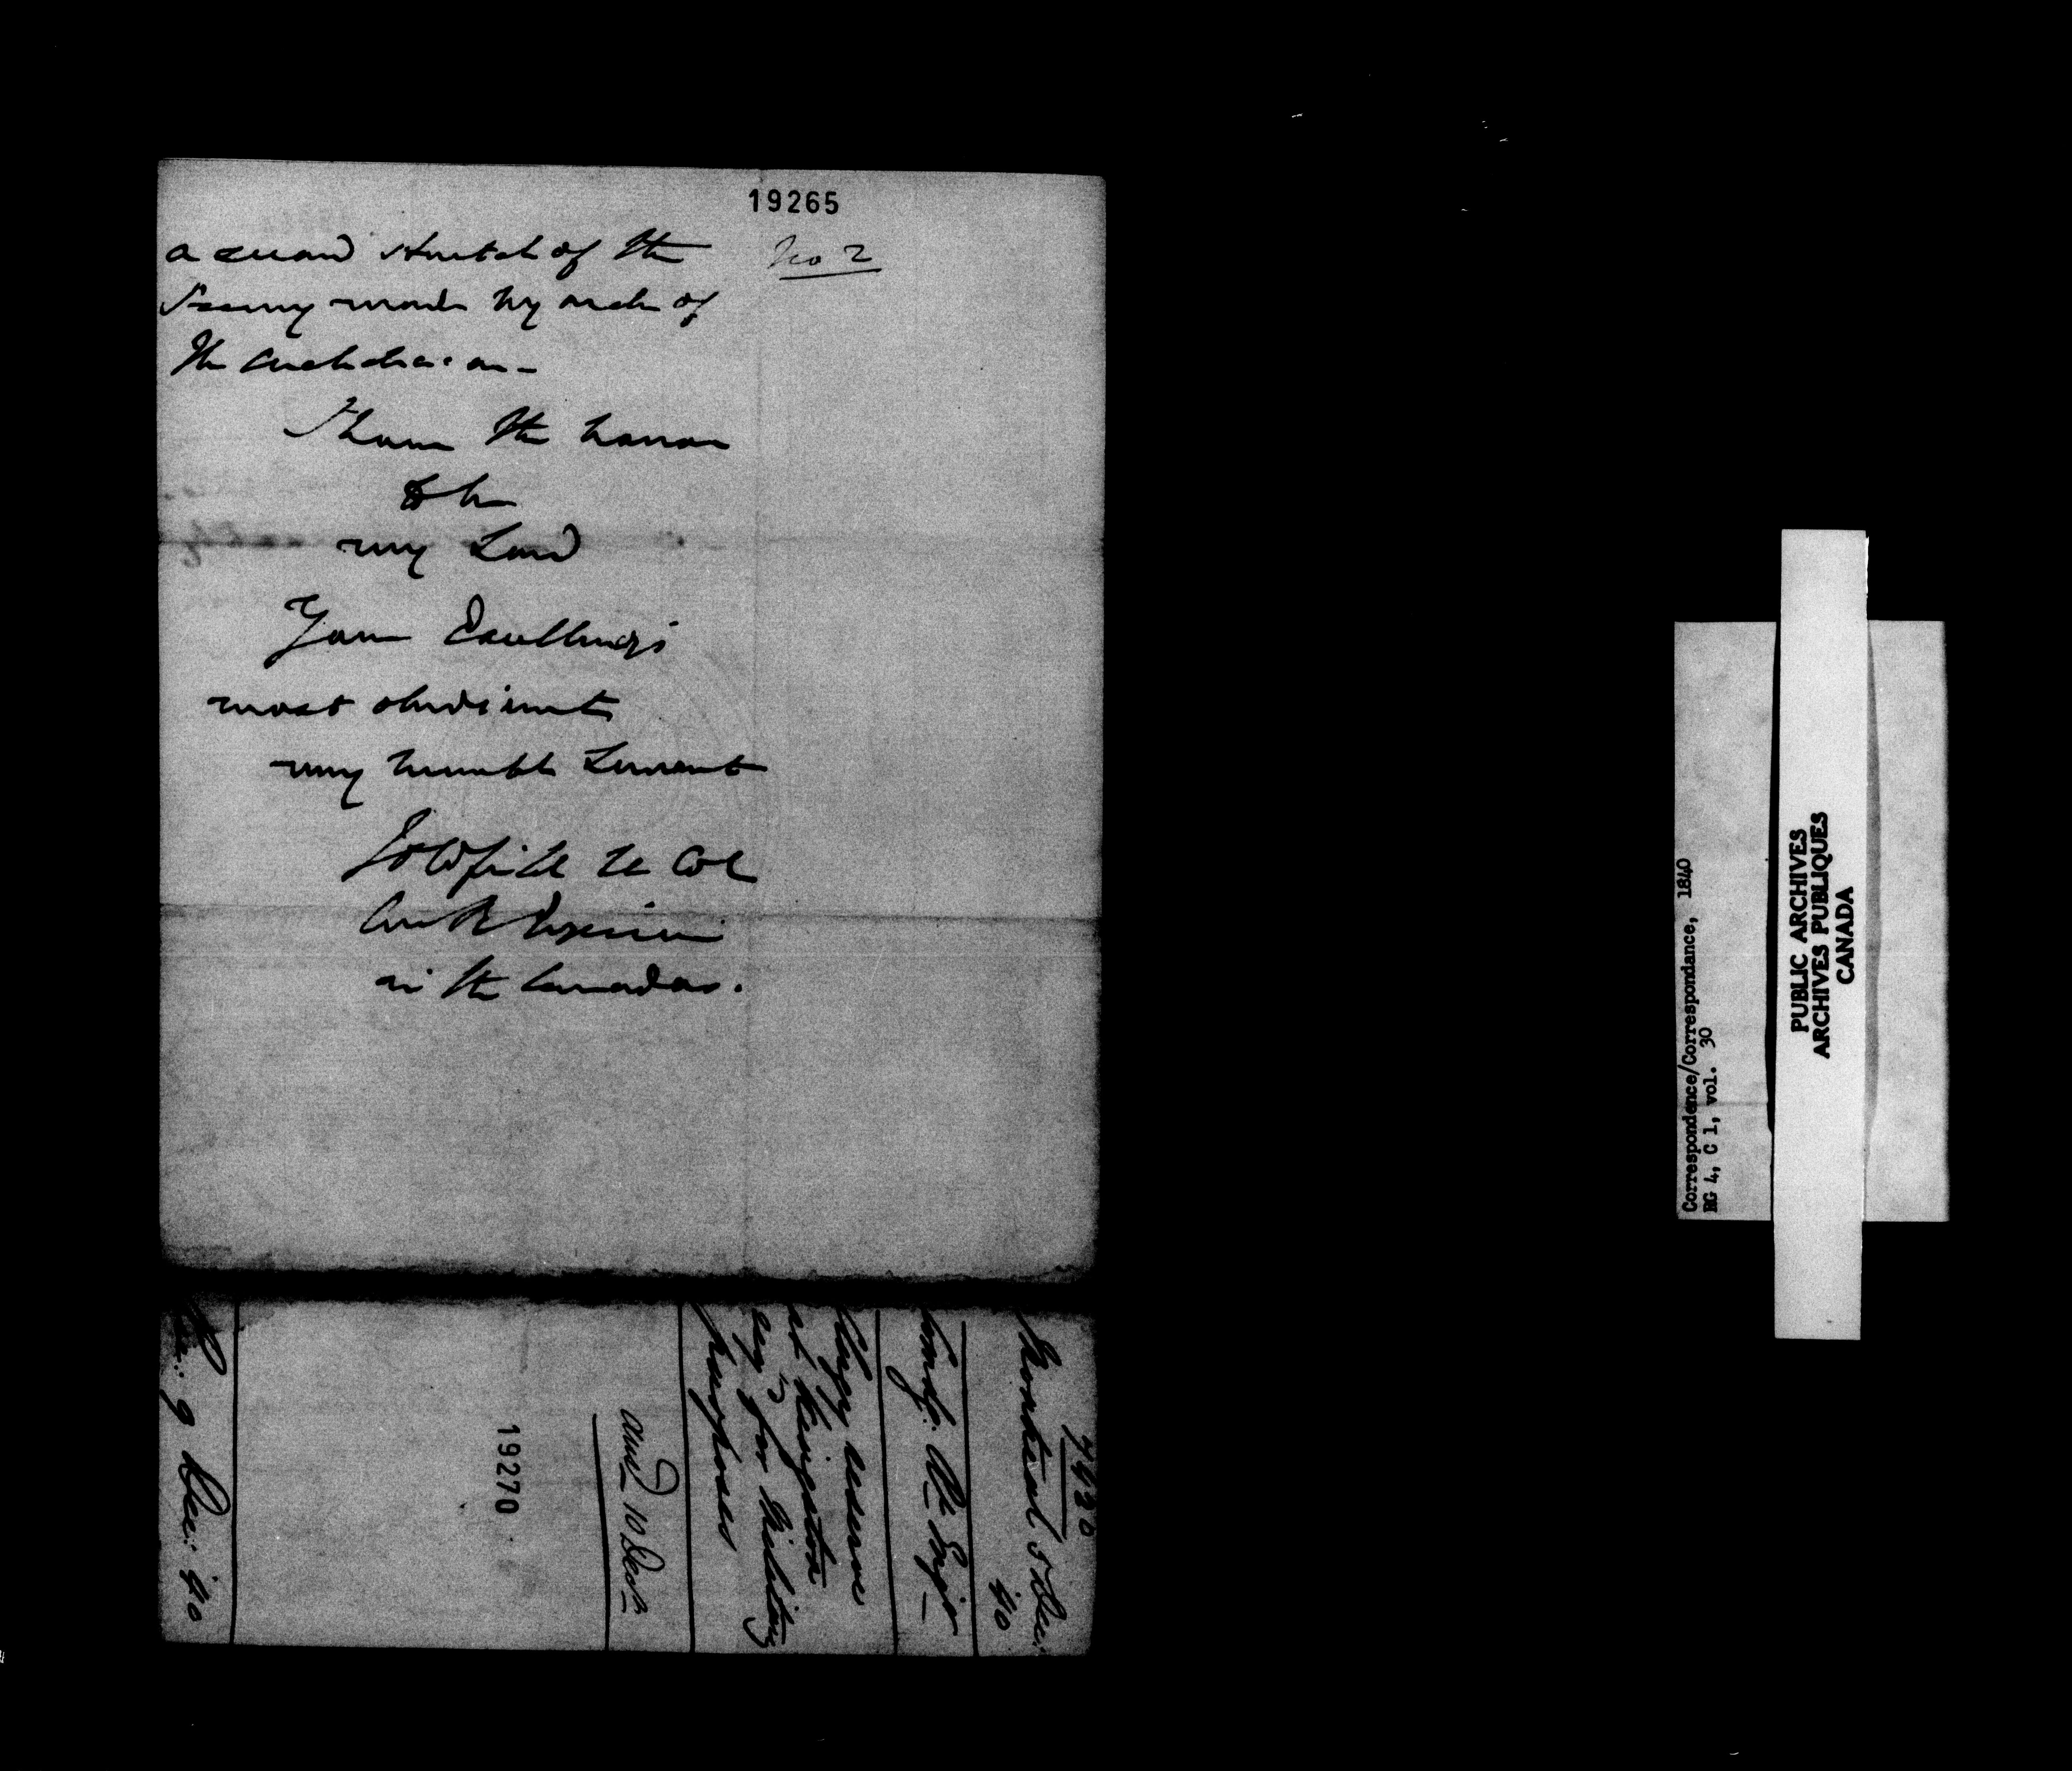 19265
No 2
a second sketch of the
made by order of
the Archdeacon -
I have the honor
to be
my Lord
Your Excellency's
most obedient
very humble Servant
Oldfield Lt Col
in the Canadas.
7420
Montreal 5 Dec:
40
Comdg. Rl. Engr
Clergy reserve
at Kingston
for Military
purposes
ansd 10 Decr.
19270
9 Dec: 40
Correspondence/Correspondance, 1840
RG 4, C 1, vol. 30
PUBLIC ARCHIVES
ARCHIVES PUBLIQUES
CANADA